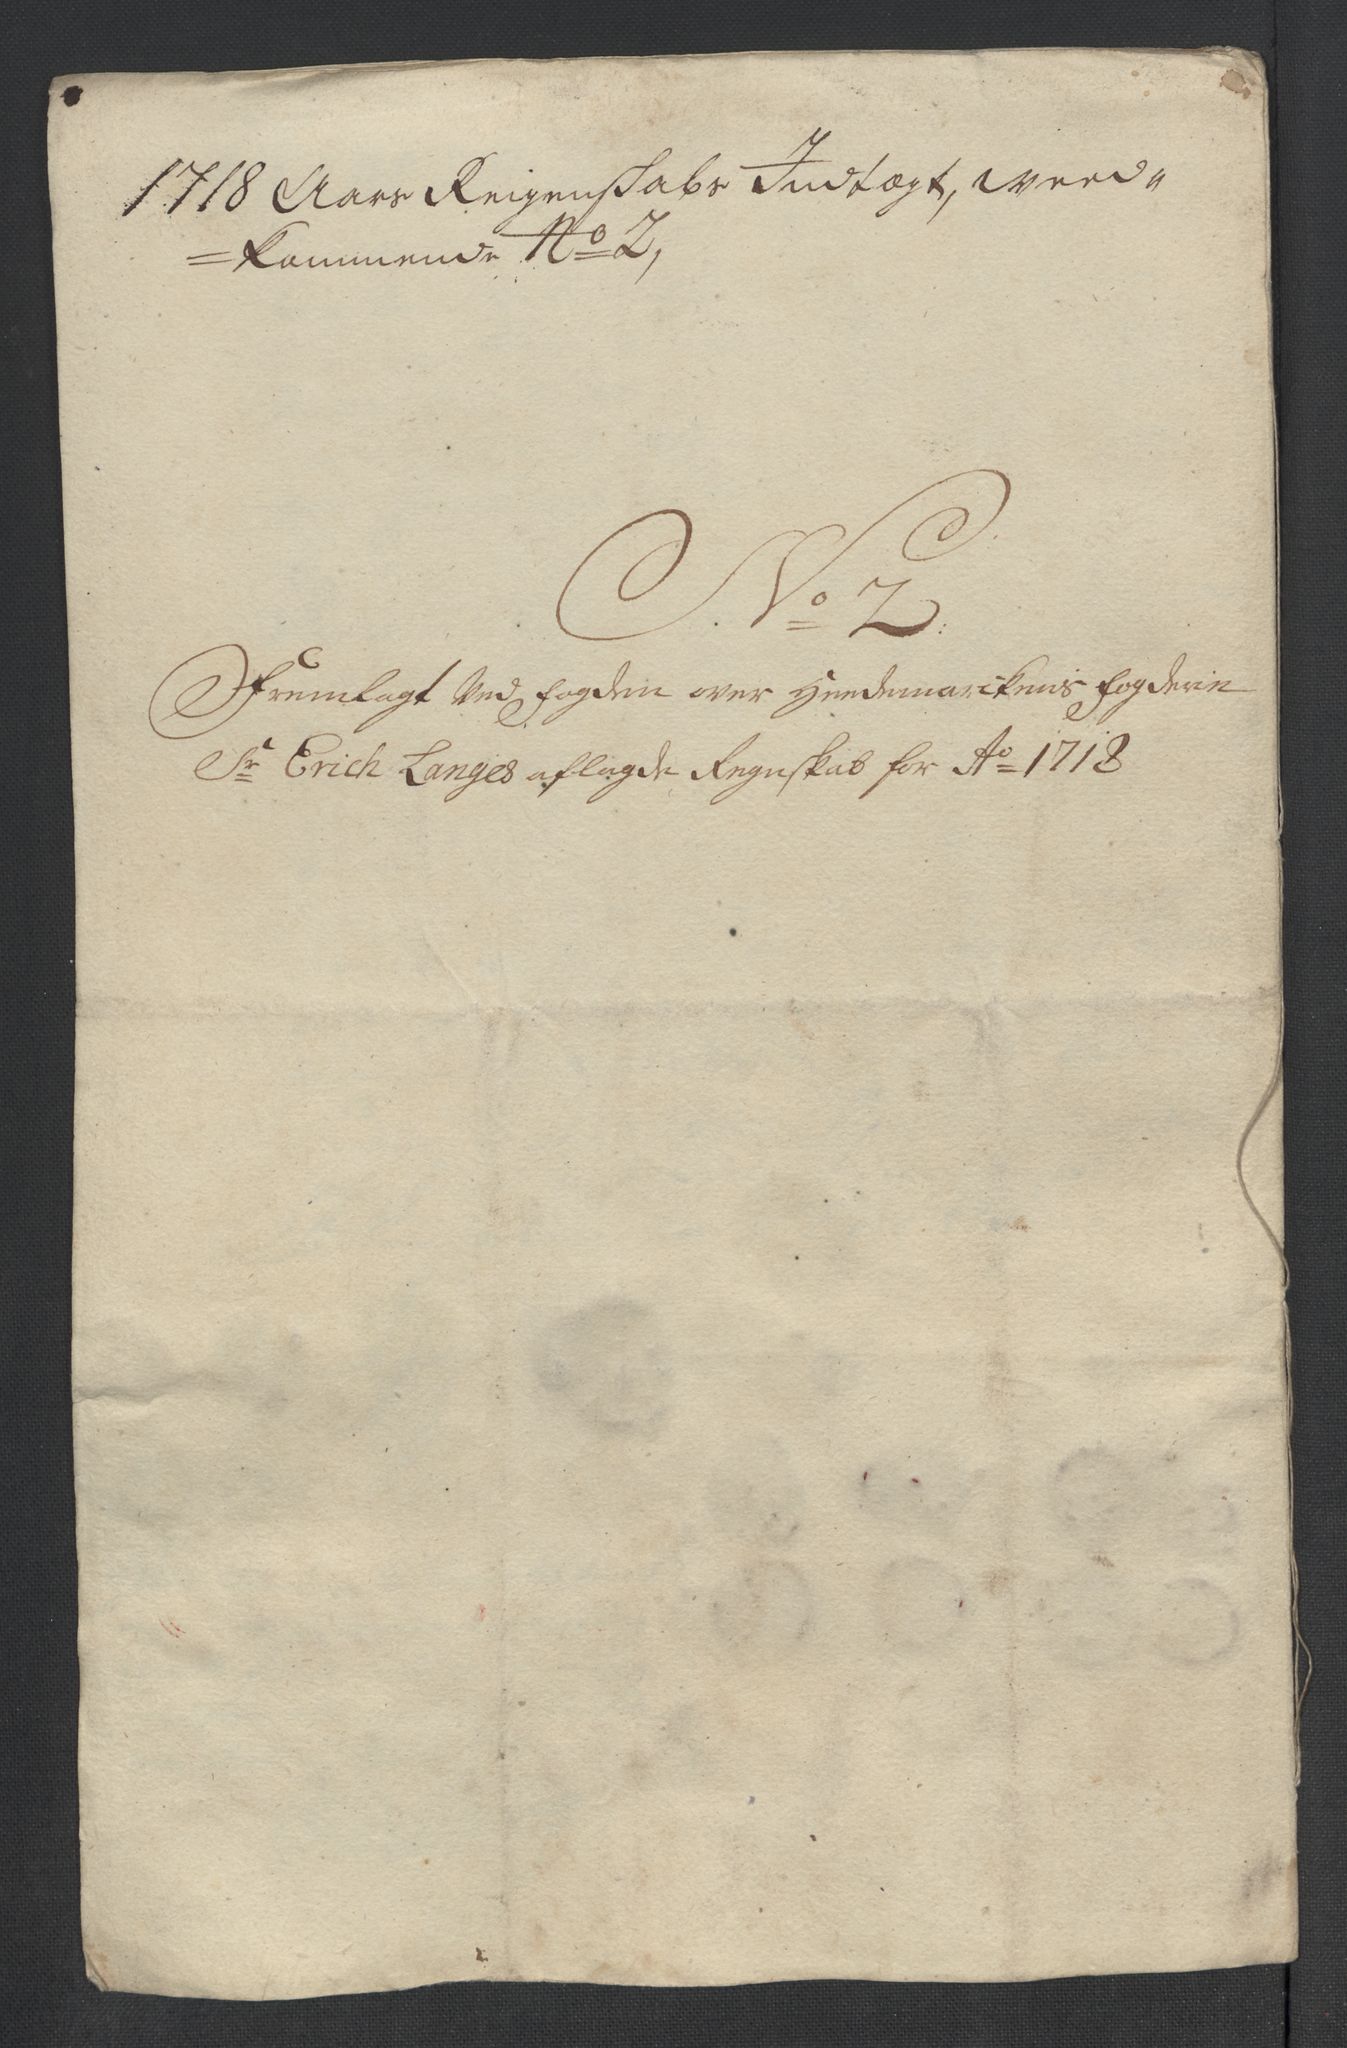 1718 Aars Reigenskabs Indtægt, weed-
=kommende No 2,
No 2.
Fremlagt Ved fogden over Heedemarckens fogderie
Sr Erich Langes aflagde Regnskab for Ao 1718